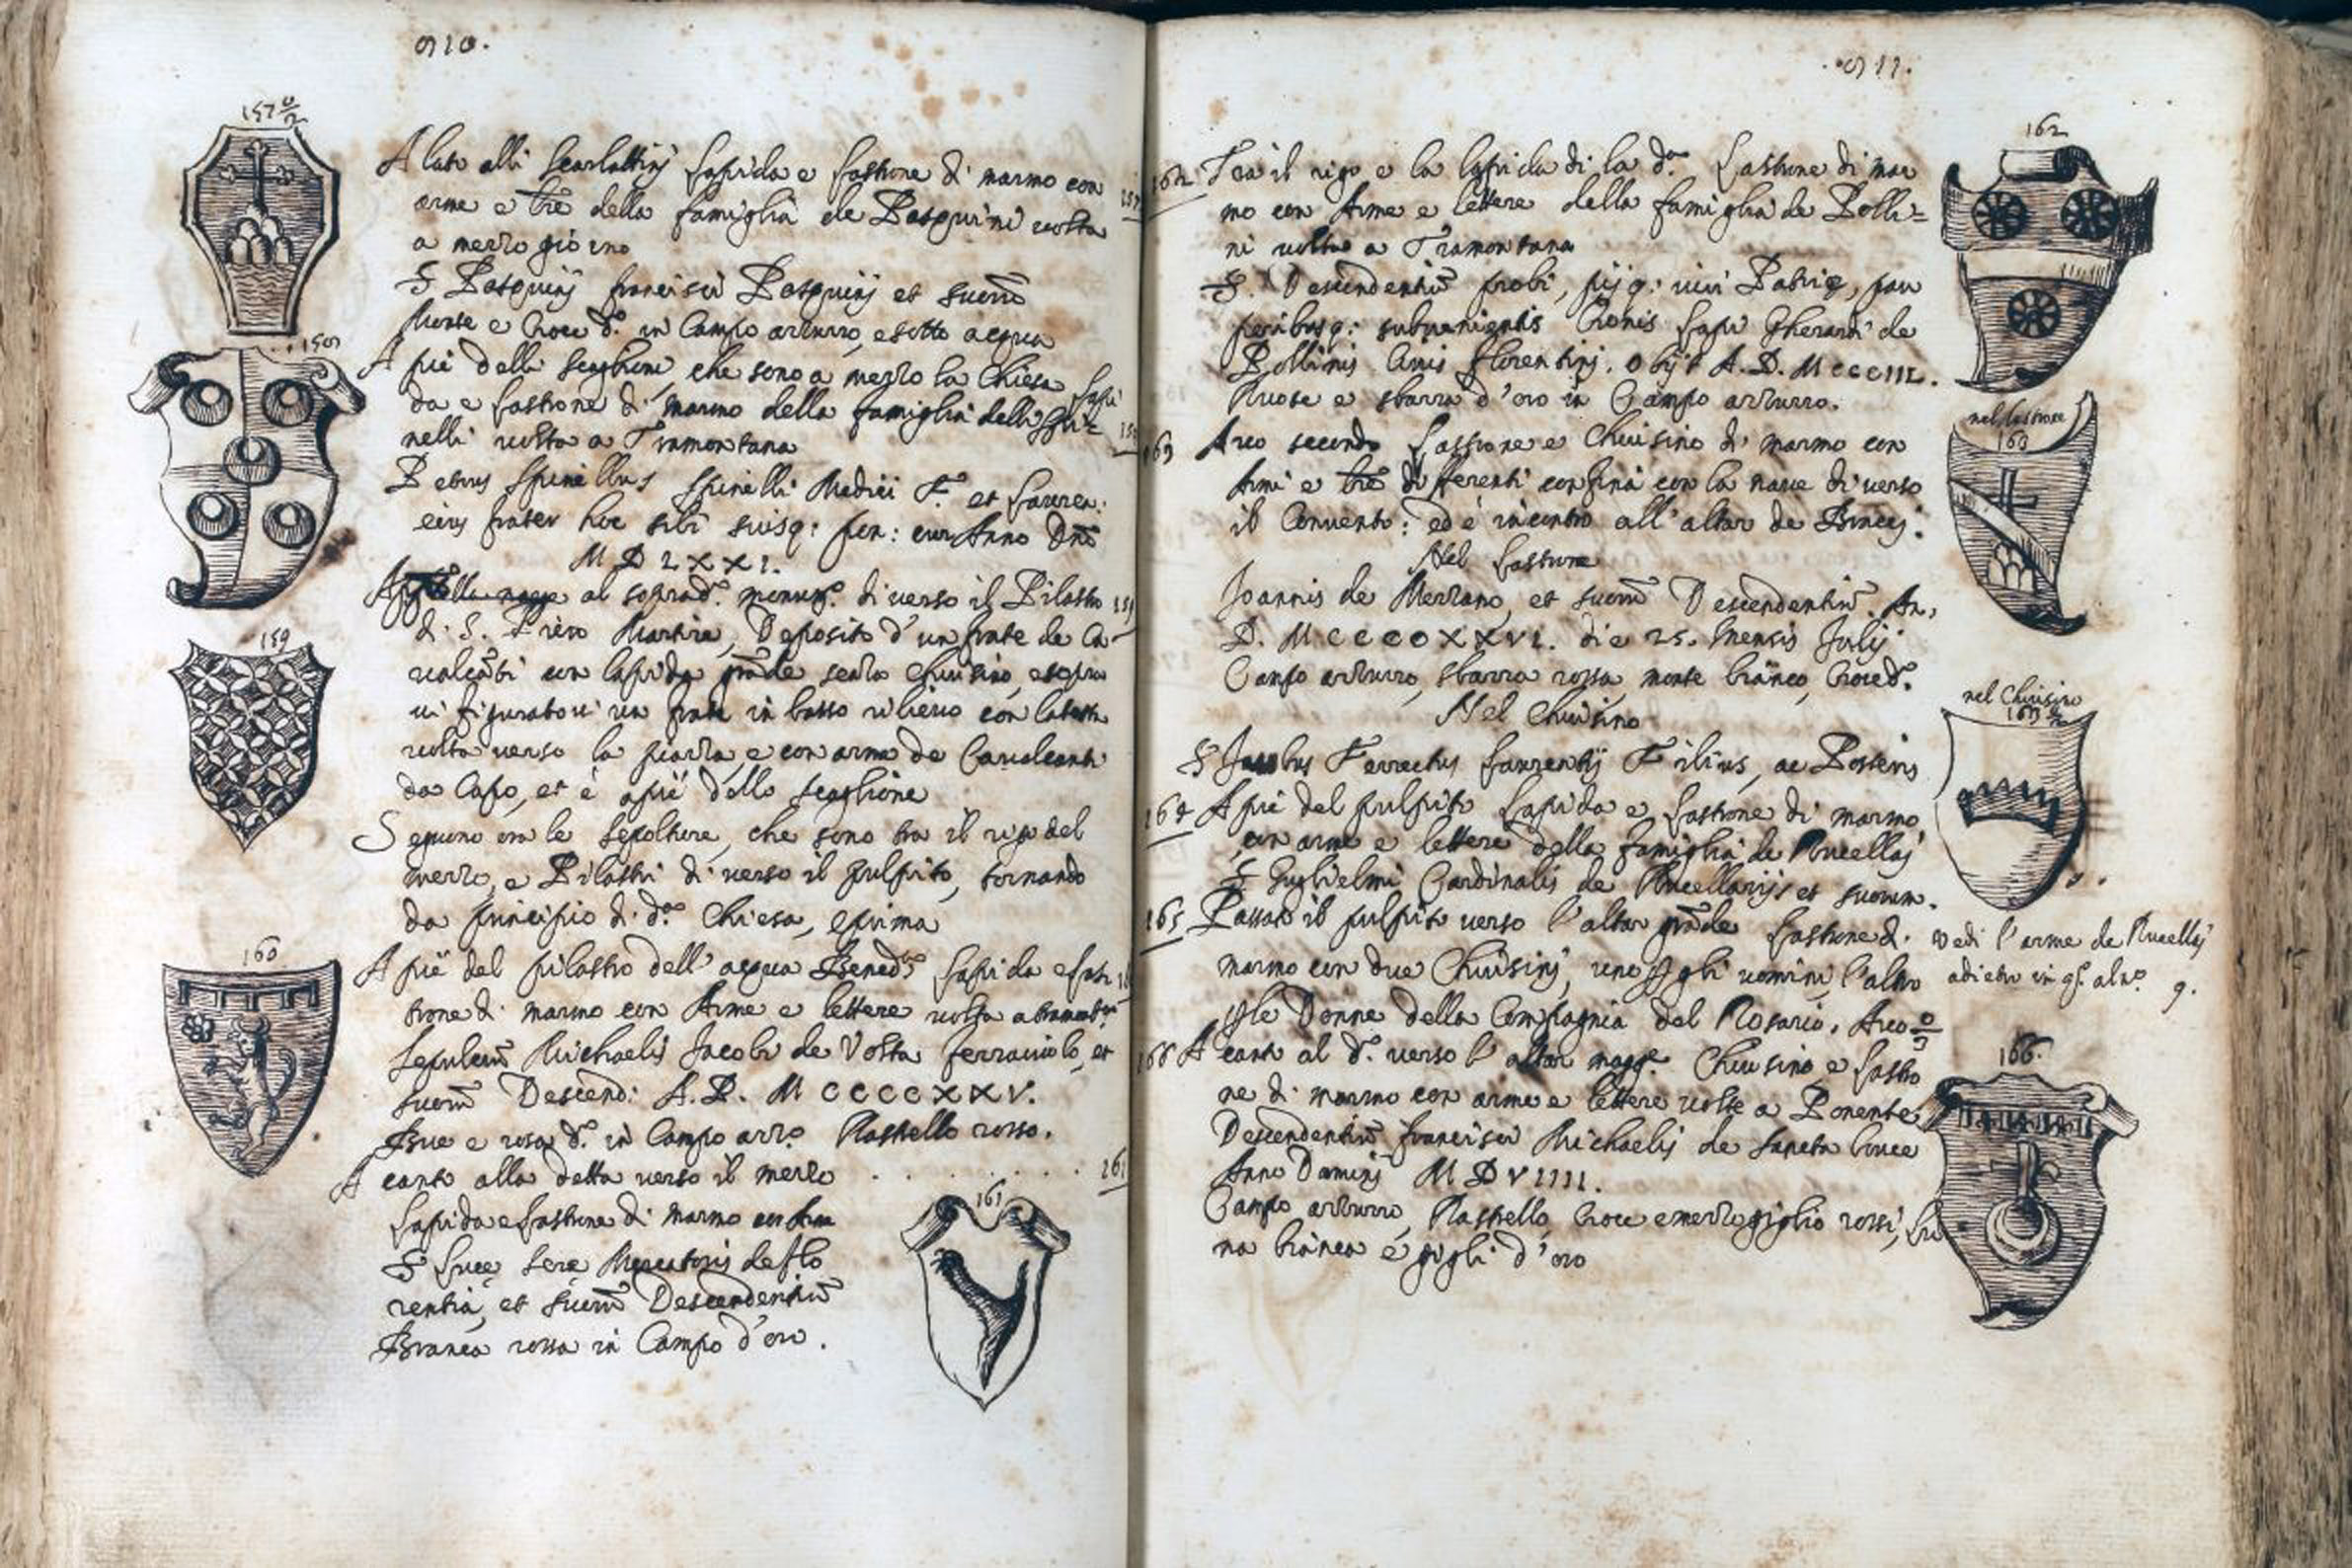 910.
157 0/2
A lato alli Scarlattinj Lapida e lastrone di marmo con
arme e lrẽ della famiglia de Pasquini volta
a mezzo giorno
S Pasquinj Francisci Pasquinj et suorũ
Monte e Croce d.º in Campo azzurro, e sotto acqua
158
A piè delli scaglioni che sono a mezzo la Chiesa Lapi
da e lastrone di marmo della famiglia delli Spi=
nelli volta a Tramontana
Petrus Spinellus Spinelli Medici F. et Lauren:
eius frater hoc sibi suisq: pon: cur Anno Dnõ
M D L X X I.
159
al soprad.º monum.º di verso il Pilastro
di S. Piero Martire, Deposito d'un frate de Ca=
valcãti con lapida grãde senza chiusino, e sopra
vi figuratovi un frate in basso rilievo con la testa
volta verso la piazza, e con arme de Cavalcanti
da Capo, et è a piè dello scaglione
Seguono ora le sepolture, che sono tra il rigo del
mezzo, e Pilastri di verso il Pulpito, tornando
da principio di d.ª Chiesa, e prima
160
A piè del pilastro dell' acqua Bened.ª Lapida e las
trone di marmo con Arme e lettere volta a tramont.ª
Sepulcrũ Michaelis Jacobi de Volta Ferraiuolo, et
suorũ Descend: A. D. M C C C C X X V.
Bue e rosa d.º in Campo azz.º Rastello rosso.
A canto alla detta verso il mezzo . . . . . 161
Lapida e lastrone di marmo con Arme
S Luce Sere Mercatoris de Flo
rentia, et suorũ Descendentiũ
Branca rossa in Campo d'oro.
161
911.
162 Tra il rigo e la lapida di la d.ª Lastrone di mar
mo con Arme e lettere della famiglia de Polli=
ni volta a Tramontana
S. Descendentiũ probi, pijq: viri Patrie, pau
peribusq: subvenientis Cionis Lapi Gherard. de
Pollinis Civis Florentini. Obijt A. D. M C C C III.
Ruote e sbarra d'oro in Campo azzurro.
162
163 Arco secondo Lastrone e Chiusino di marmo con
Armi e lrẽ differenti confina con la nave di verso
il Convento: ed è incontro all' altar de
Nel Lastrone
Joannis de Mezzano, et suorũ Descendentiũ. An,
D. M C C C C X X V I. die 25. Mensis Julij
Campo azzurro, sbarra rossa, monte biãnco, Croce d.º
nel lastrone
163
Nel Chiusino
S Jacobus Ferrectus Laurentij Filius, ac Posteris
nel Chiusino
163 0/2
164 A piè del pulpito Lapida e lastrone di marmo
con arme e lettere della famiglia de Rucellaj
S Guglielmi Cardinalis de Rucellarijs et suorum.
165 Passato il pulpito verso l' altar grãde Lastrone di
marmo con due Chiusinj, uno p gli uomini, l'altro
p le Donne della Compagnia del Rosario. Arco 0/3
Vedi l'arme de Rucellaj
adietro in q.º al n.º 9.
166 A canto al d.º verso l' altar magg.e Chiusino e lastro
ne di marmo con arme e lettere volte a Ponente
Descendentiũ Francisci Michaelis de Sancta Cruce
Anno Dominj M D V I I I I.
Campo azzurro, Rastello, Croce e mezzo giglio rossi, Lu
na biãnca e gigli d'oro
166.